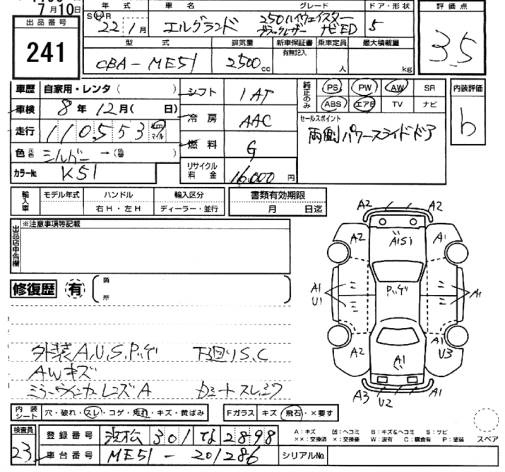 7月10日
出品番号
241
年式 車名 グレード ドア・形状 評価点
22 1月 エルグランド 250ハイウェイスター ナビED 5 3.5
型式 排気量 新車保証書 乗車定員 最大積載量
有無記入
CBA-ME51 2500cc 人 kg
車歴 自家用・レンタ( )
車検 8年12月( 日)
走行 110,553 km マイル
色 シルバー
カラーNo. K51
シフト IAT
冷房 AAC
燃料 G
リサイクル料金 16,000円
純正のみ PS PW AW SR
ABS エアB TV ナビ
内装評価
b
セールスポイント
両側パワースライドドア
輸入車 モデル年式 ハンドル 輸入区分 書類有効期限
年 右H・左H ディーラー・並行 月 日迄
出品店申告欄
※注意事項等記載
修復歴 有 箇所
外装A,U,S,Pッゲ 下廻りS,C
AWキズ
ミラーウィンカーレンズA
A2 A2
A2 A1S1 A1
A1 U1 Pッゲ A1
A2 A1 U3
A3 U2
内装シート 穴・破れ・スレ・コゲ・汚れ・キズ・黄ばみ Fガラス キズ 飛石・×要す
検査員 23
登録番号 浜松 301 な 2898
車台番号 ME51-201286 シリアルNo.
A:キズ U:ヘコミ B:キズ&ヘコミ S:サビ
××:交換済 ×:要交換 W:波有 C:腐食有 P:塗装
スペア